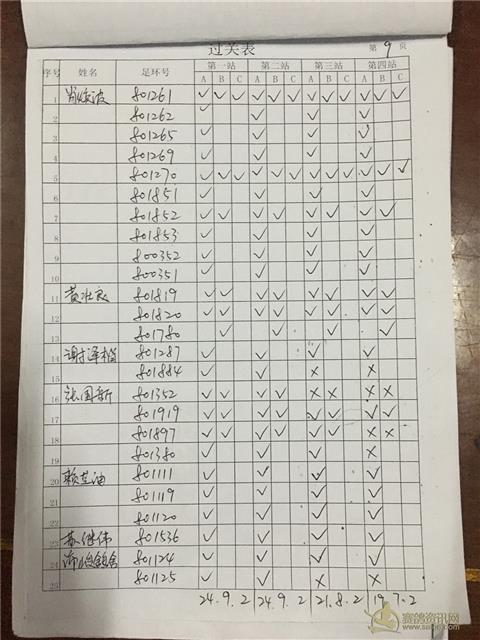 过关表 第9页
序号 姓名 足环号 第一站 第二站 第三站 第四站
A B C A B C A B C A B C
1 801261 ✓ ✓ ✓ ✓ ✓ ✓ ✓ ✓ ✓ ✓ ✓ ✓
2 801262 ✓ ✓ ✓ ✓
3 801265 ✓ ✓ ✓ ✓
4 801269 ✓ ✓ ✓ ✓
5 801270 ✓ ✓ ✓ ✓ ✓ ✓ ✓ ✓ ✓ ✓ ✓ ✓
6 801851 ✓ ✓ ✓ ✓
7 801852 ✓ ✓ ✓ ✓ ✓ ✓ ✓ ✓
8 801853 ✓ ✓ ✓ ✓
9 800352 ✓ ✓ ✓ ✓
10 800351 ✓ ✓ ✓ ✓
11 801819 ✓ ✓ ✓ ✓ ✓ ✓ ✓ ✓
12 801820 ✓ ✓ ✓ ✓ ✓ ✓ ✓ ✓
13 801780 ✓ ✓ ✓ ✓
14 801287 ✓ ✓ ✓ ✓
15 801884 ✓ ✓ × ×
16 张国新 801352 ✓ ✓ ✓ ✓ × × × ×
17 801919 ✓ ✓ ✓ ✓ ✓ ✓ ✓ ✓
18 801897 ✓ ✓ ✓ ✓ ✓ ✓ × ×
19 801380 ✓ ✓ ✓ ×
20 801111 ✓ ✓ ✓ ✓
21 801119 ✓ ✓ ✓ ✓
22 801120 ✓ ✓ ✓ ✓
23 苏继伟 801536 ✓ ✓ ✓ ✓
24 801124 ✓ ✓ ✓ ✓
25 801125 ✓ ✓ × ×
24.9.2 24.9.2 21.8.2 19.7.2
赛鸽资讯网